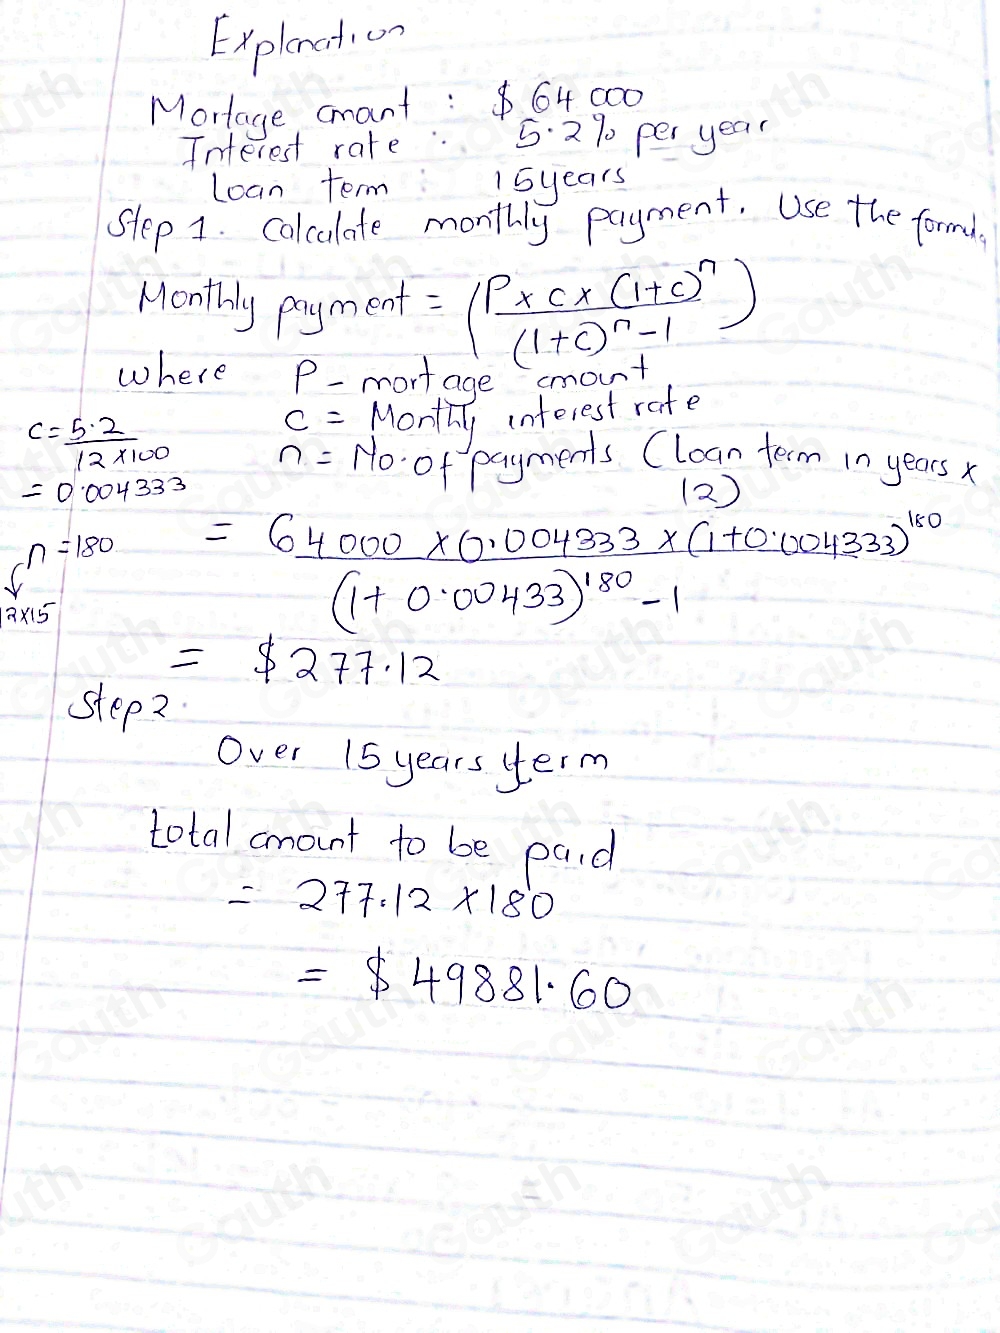 Explanation
Mortage amount : $ 64 000
Interest rate : 5.2% per year
Loan term : 15 years
Step 1. Calculate monthly payment. Use the formula
Monthly payment = (P x c x (1+c)^n / (1+c)^n - 1)
where P - mortage amount
c = Monthly interest rate
n = No. of payments (loan term in years x 12)
c = 5.2 / 12 x 100
= 0.004333
n = 180
12x15
= 64 000 x 0.004333 x (1+0.004333)^180 / (1 + 0.00433)^180 - 1
= $ 277.12
Step 2.
Over 15 years term
total amount to be paid
= 277.12 x 180
= $ 49881.60
Gauth